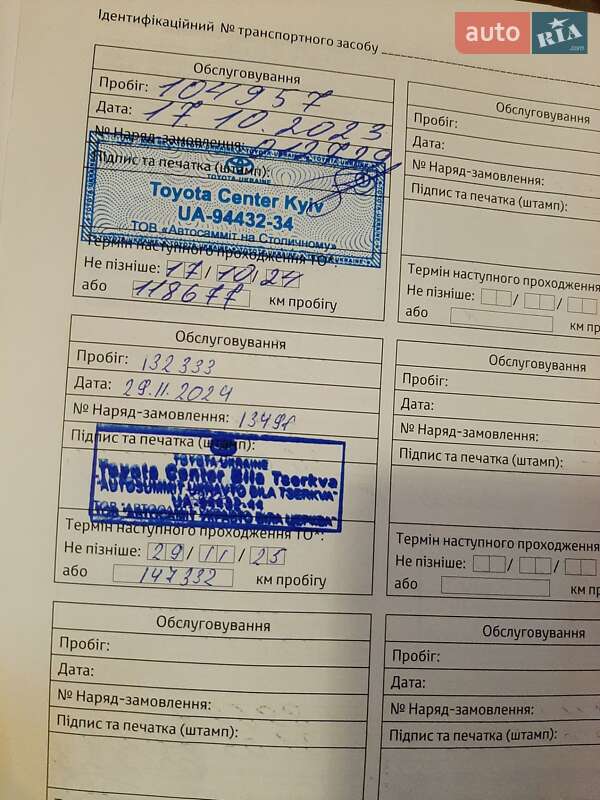 Ідентифікаційний № транспортного засобу
auto RIA .com
Обслуговування
Пробіг: 104957
Дата: 17 10.2023
№ Наряд-замовлення:
Підпис та печатка (штамп):
TOYOTA-UKRAINE
Toyota Center Kyiv
UA-94432-34
ТОВ «Автосамміт на Столичному»
Термін наступного проходження ТО*:
Не пізніше: 17 / 10 / 24
або 118677 км пробігу
Обслуговування
Пробіг:
Дата:
№ Наряд-замовлення:
Підпис та печатка (штамп):
Термін наступного проходження
Не пізніше: / /
або км пр
Обслуговування
Пробіг: 132333
Дата: 29.11.2024
№ Наряд-замовлення: 13498
Підпис та печатка (штамп):
TOYOTA UKRAINE
Toyota Center Bila Tserkva
UA-94432-44
Термін наступного проходження ТО*:
Не пізніше: 29 / 11 / 25
або 147332 км пробігу
Обслуговування
Пробіг:
Дата:
№ Наряд-замовлення:
Підпис та печатка (штамп):
Термін наступного проходження
Не пізніше: / /
або км про
Обслуговування
Пробіг:
Дата:
№ Наряд-замовлення:
Підпис та печатка (штамп):
Обслуговування
Пробіг:
Дата:
№ Наряд-замовлення:
Підпис та печатка (штамп):